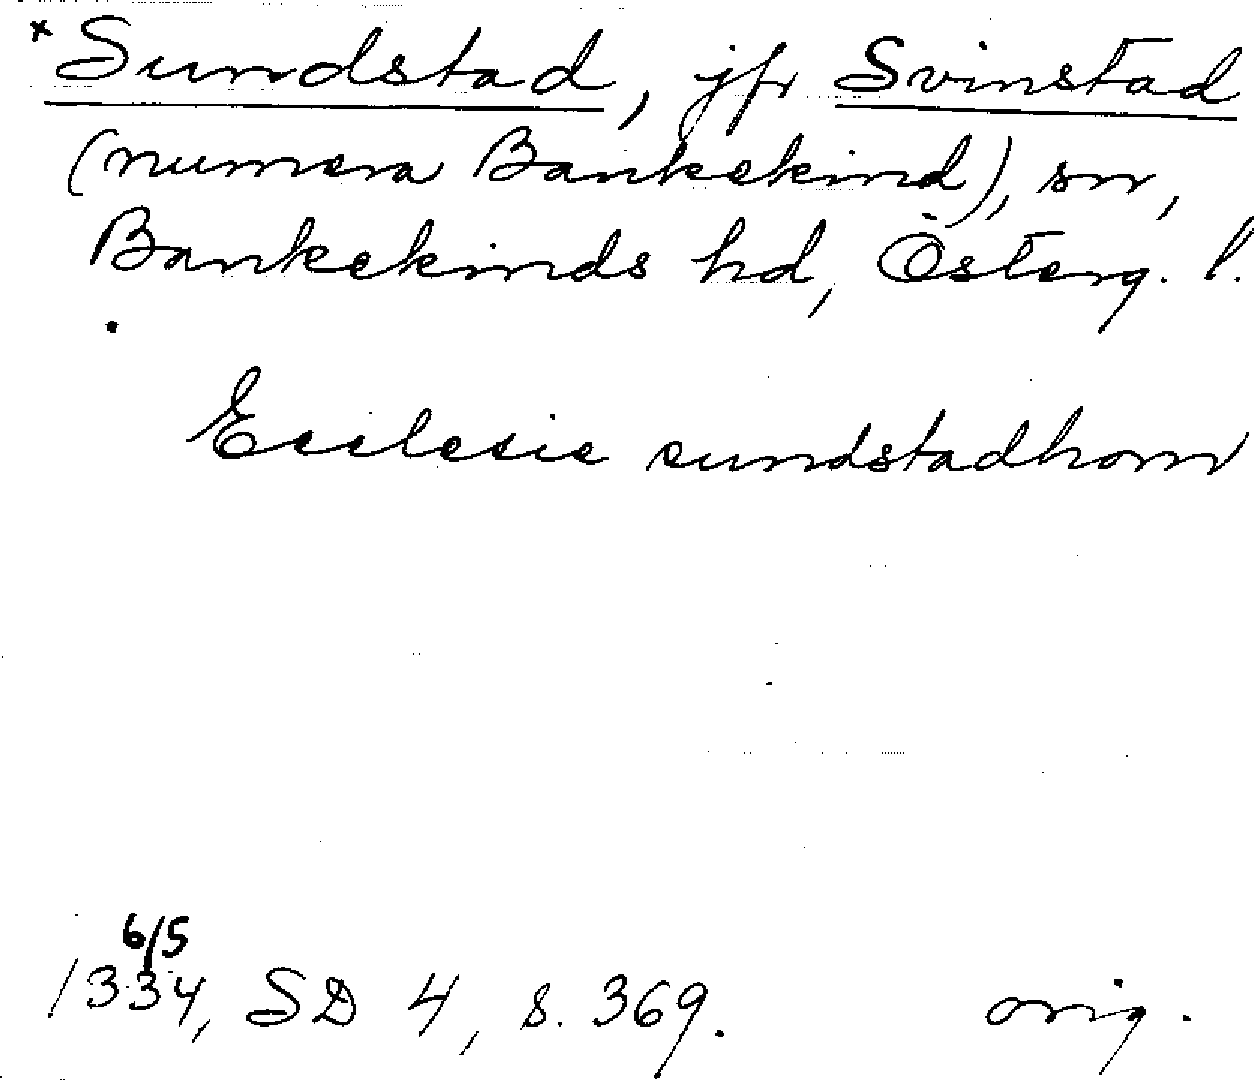 ×Sundstad, jfr Svinstad
(numera Bankekind), sn,
Bankekinds hd, Österg. l.
Ecclesie sundstadhom
6/5
1334, SD 4, s. 369. orig.